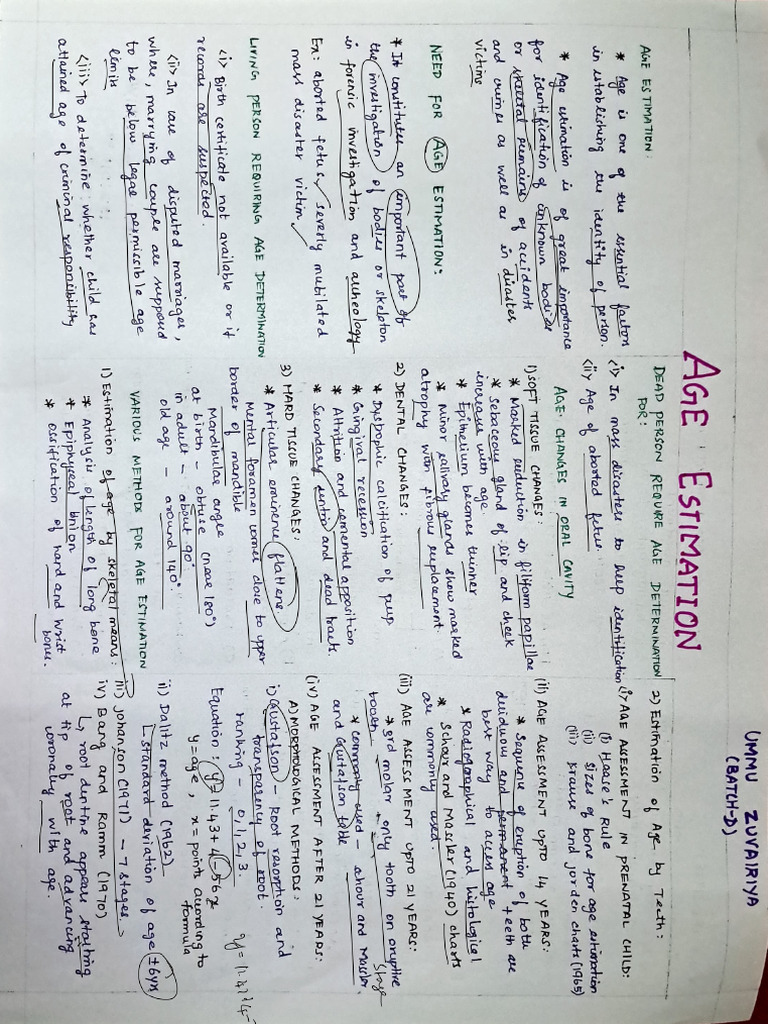 UMMU ZUVAIRIYA
(BATCH-D)
AGE ESTIMATION
AGE ESTIMATION:
* Age is one of the essential factors
in establishing the identity of person.
* Age estimation is of great importance
for identification of unknown bodies
or skeletal remains of accidents
and crimes as well as in disaster
victims
NEED FOR AGE ESTIMATION:
* It constitutes an important part of
the investigation of bodies or skeleton
in forensic investigation and archeology
Ex: aborted fetus, severly mutilated
mass disaster victim
LIVING PERSON REQUIRING AGE DETERMINATION
<i> Birth certificate not available or if
records are suspected.
<ii> In case of disputed marriages,
where, marrying couple are supposed
to be below legal permissible age
limits
<iii> To determine whether child has
attained age of criminal responsibility
DEAD PERSON REQUIRE AGE DETERMINATION
FOR:
<i> In mass disasters to help identification
<ii> Age of aborted fetus.
AGE CHANGES IN ORAL CAVITY
1) SOFT TISSUE CHANGES:
* Marked reduction in filiform papillae
* Sebaceous gland of lip and cheek
increases with age.
* Epithelium becomes thinner
* Minor salivary glands show marked
atrophy with fibrous replacement
2) DENTAL CHANGES:
* Dystrophic calcification of pulp
* Gingival recession
* Attrition and cemental apposition
* Secondary dentin and dead tracts.
3) HARD TISSUE CHANGES:
* Articular eminence flattens.
Mental foramen comes close to upper
border of mandible
Mandibular angle
at birth - obtuse (near 180°)
in adult - about 90°
old age - around 140°.
VARIOUS METHODS FOR AGE ESTIMATION
1) Estimation of age by skeletal means:
* Analysis of length of long bone
* Epiphyseal union
* Ossification of hand and wrist
bones.
2) Estimation of Age by Teeth:
(i) AGE ASSESSMENT IN PRENATAL CHILD:
(i) Haase's Rule
(ii) sizes of bone for age estimation
(iii) Krause and Jorden charts (1965)
(ii) AGE ASSESSMENT UPTO 14 YEARS:
* Sequence of eruption of both
deciduous and permanent teeth are
best way to access age
* Radiographical and histological
* Schour and Massler (1940) charts
are commonly used.
(iii) AGE ASSESSMENT UPTO 21 YEARS:
* 3rd molar only tooth on eruptive
stage
* commonly used - shour and Massler,
and Gustafson table
(iv) AGE ASSESSMENT AFTER 21 YEARS:
A) MORPHOLOGICAL METHODS:
i) Gustafson - Root resorption and
transparency of root.
ranking - 0, 1, 2, 3.
Equation: y = 11.43 + 4.56x
y = age, x = points according to
formula
ii) Dalitz method (1962)
standard deviation of age ±6yrs
iii) Johanson (1971) - 7 stages
iv) Bang and Ramm (1970)
↳ root dentine appears starting
at tip of root and advancing
coronally with age.